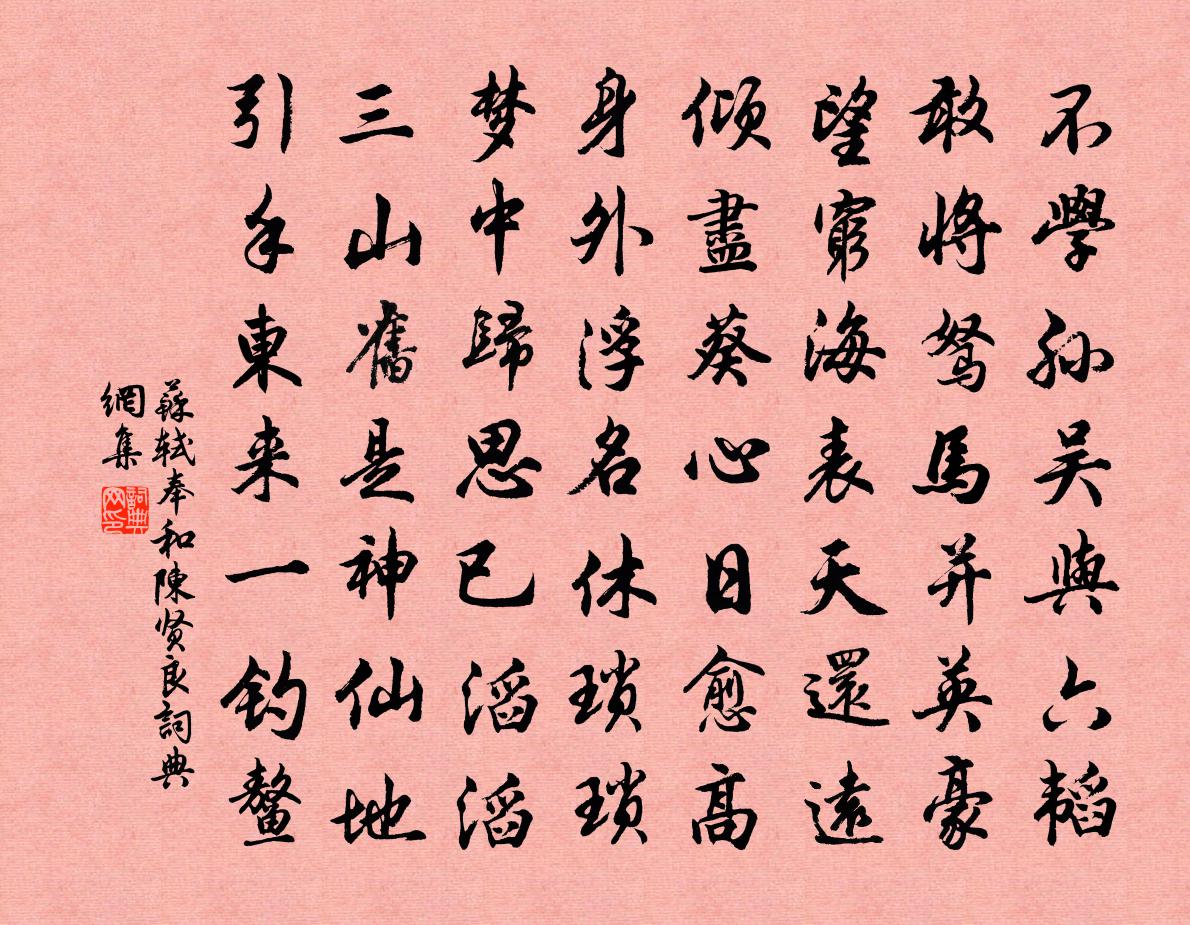 不學孙吴與六韬
敢將駑馬并英豪
望窮海表天還遠
倾盡葵心日愈高
身外浮名休琐琐
梦中歸思已滔滔
三山舊是神仙地
引手東来一钓鳌
蘇轼奉和陳贤良詞典
網集
詞典
网印